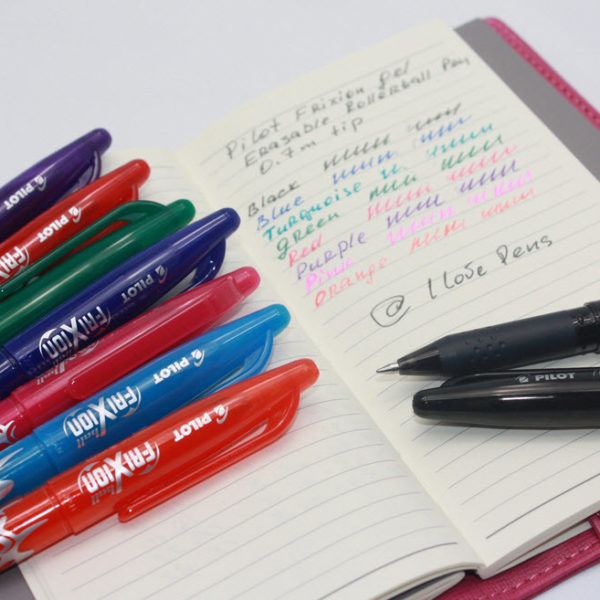 Pilot Frixion gel
Erasable Rollerball Pen
0.7m tip
Black
Blue
Turquoise
Green
Red
Purple
Pink
Orange
@ I Love Pens
PILOT
PILOT
FRIXION
PILOT
FRIXION
ball
PILOT
FRIXION
ball
PILOT
FRIXION
ball
PILOT